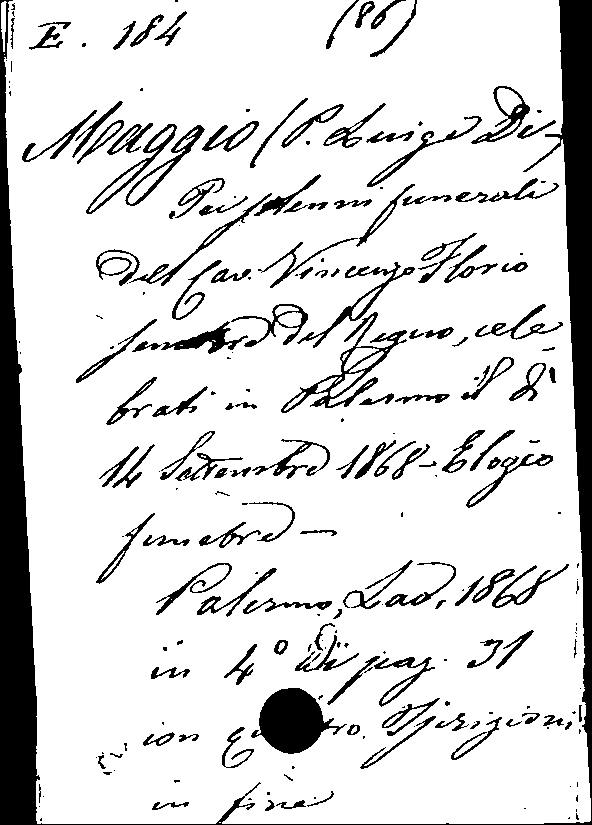 E. 184 (86)
Maggio (P. Luigi Di)
Pei solenni funerali
del Cav. Vincenzo Florio
senatore del Regno, cele-
brati in Palermo il dì
14 Settembre 1868 - Elogio
funebre -
Palermo, Lao, 1868
in 4º di pag. 31
con Iscrizioni
in fine